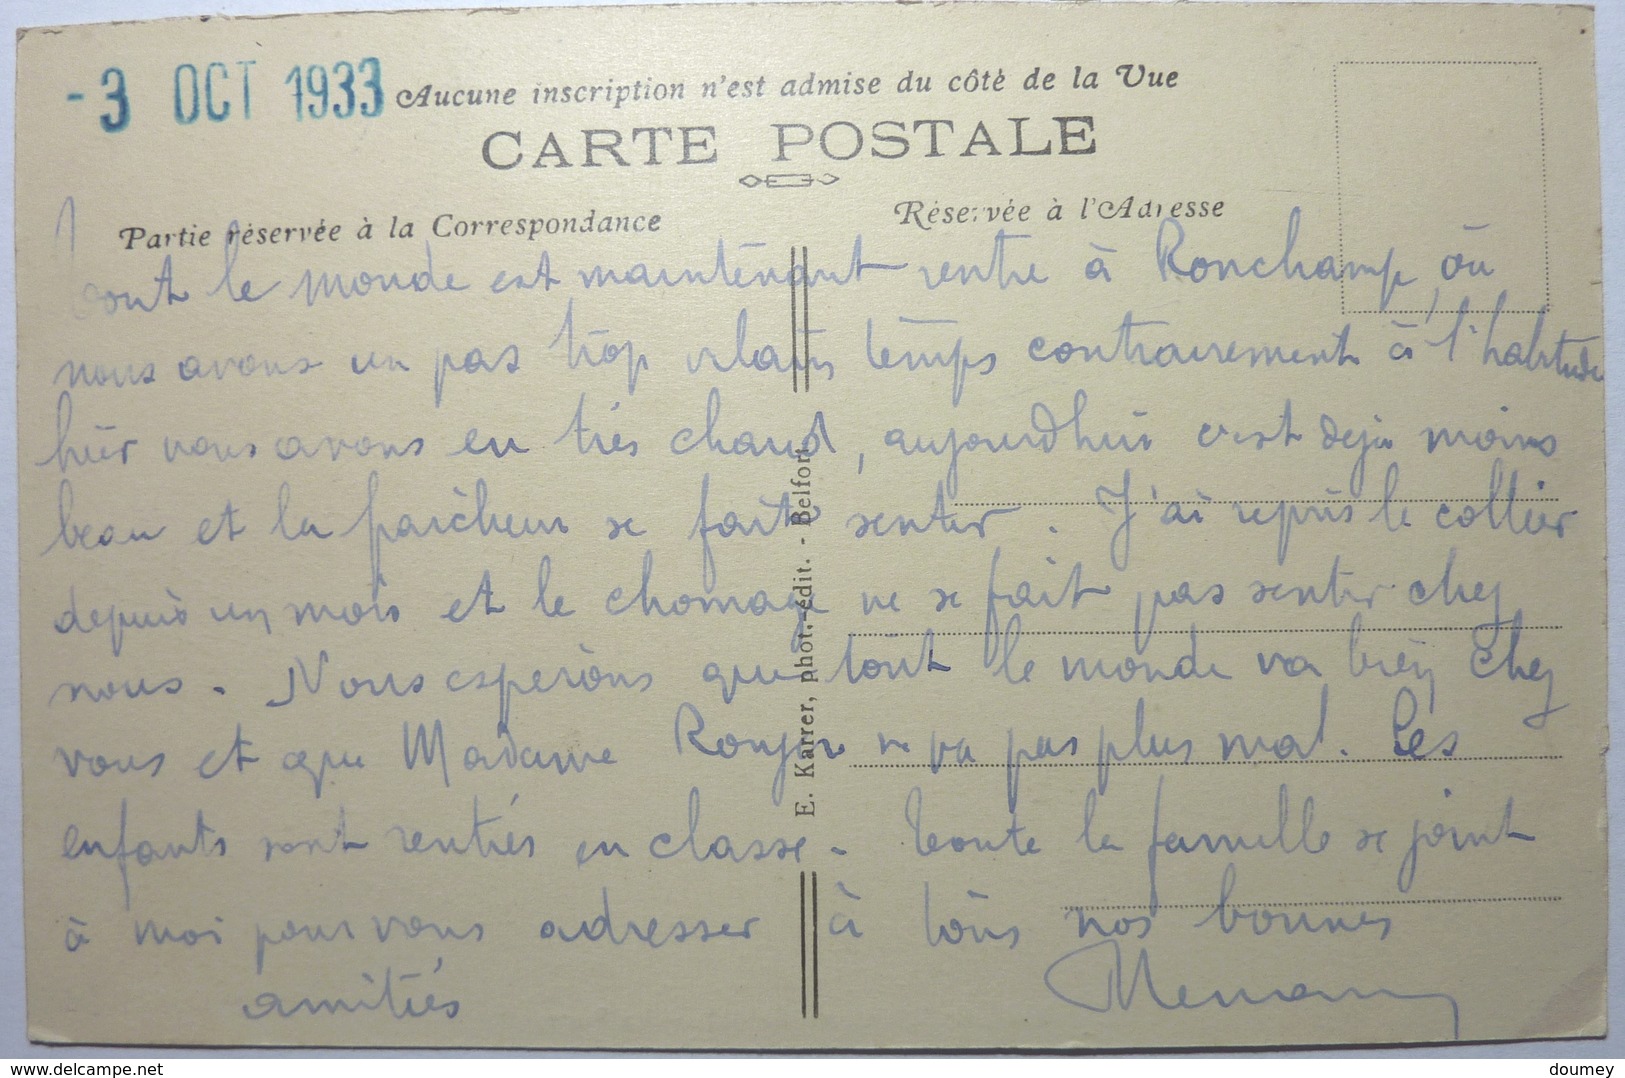 - 3 OCT 1933
Aucune inscription n'est admise du côté de la Vue
CARTE POSTALE
Partie réservée à la Correspondance
Réservée à l'Adresse
Tout le monde est maintenant rentré à Ronchamp, où
nous avons un pas trop vilain temps contrairement à l'habitude
hier nous avons eu très chaud, aujourdhui c'est deja moins
beau et la fraicheur se fait sentir. J'ai repris le collier
depuis un mois et le chomage ne se fait pas sentir chez
nous. Nous esperons que tout le monde va bien chez
vous et que Madame ne va pas plus mal. Les
enfants sont rentrés en classe. Toute la famille se joint
à moi pour vous adresser à tous nos bonnes
amitiés
E. Karrer, phot.-édit. - Belfort
www.delcampe.net
doumey